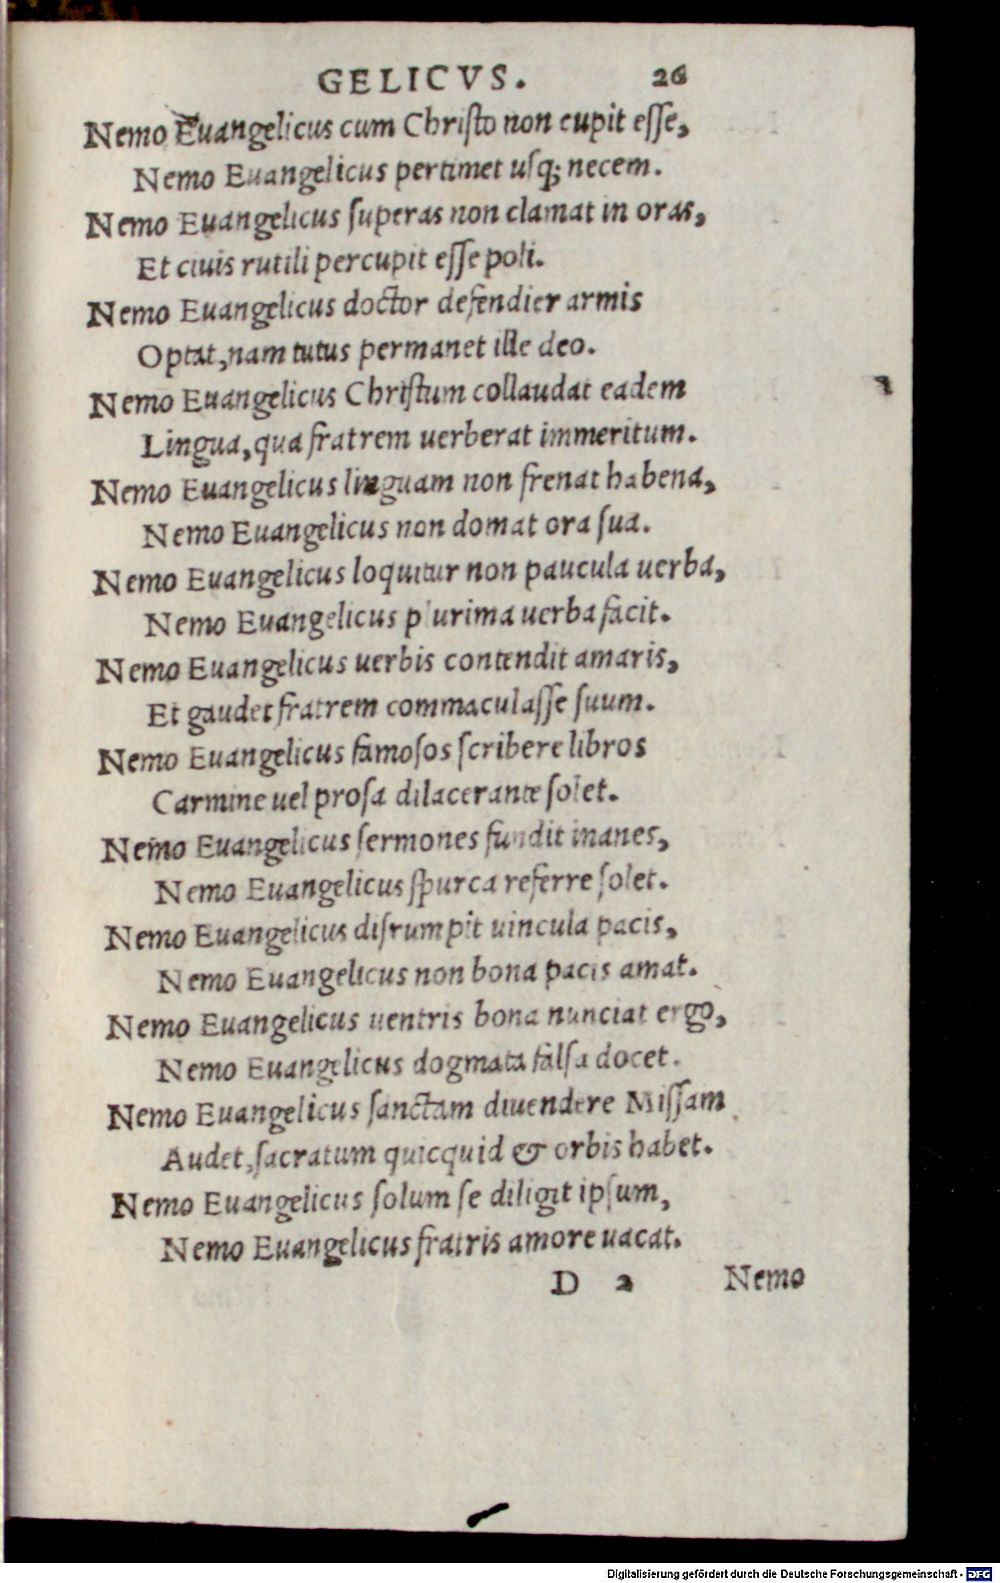 GELICVS. 26
Nemo Euangelicus cum Christo non cupit esse,
Nemo Euangelicus pertimet usq; necem.
Nemo Euangelicus superas non clamat in oras,
Et ciuis rutili percupit esse poli.
Nemo Euangelicus doctor defendier armis
Optat, nam tutus permanet ille deo.
Nemo Euangelicus Christum collaudat eadem
Lingua, qua fratrem uerberat immeritum.
Nemo Euangelicus linguam non frenat habena,
Nemo Euangelicus non domat ora sua.
Nemo Euangelicus loquitur non paucula uerba,
Nemo Euangelicus plurima uerba facit.
Nemo Euangelicus uerbis contendit amaris,
Et gaudet fratrem commaculasse suum.
Nemo Euangelicus famosos scribere libros
Carmine uel prosa dilacerante solet.
Nemo Euangelicus sermones fundit inanes,
Nemo Euangelicus spurca referre solet.
Nemo Euangelicus disrumpit uincula pacis,
Nemo Euangelicus non bona pacis amat.
Nemo Euangelicus uentris bona nunciat ergò,
Nemo Euangelicus dogmata falsa docet.
Nemo Euangelicus sanctam diuendere Missam
Audet, sacratum quicquid & orbis habet.
Nemo Euangelicus solum se diligit ipsum,
Nemo Euangelicus fratris amore uacat.
D 2 Nemo
Digitalisierung gefördert durch die Deutsche Forschungsgemeinschaft - DFG